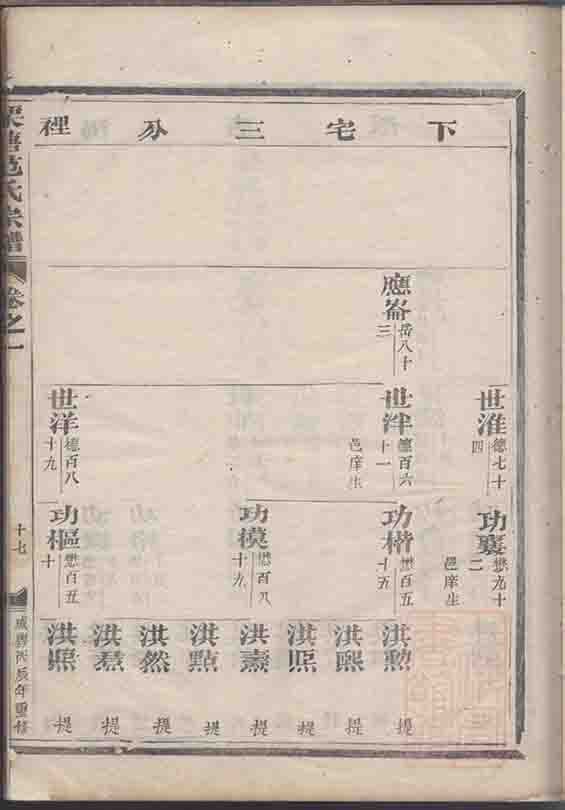 下宅三分裡
應崙 岳八十三
世淮 德七十四
世泮 德百六十一 邑庠生
世洋 德百八十九
功襄 懋九十二 邑庠生
功楷 懋百五十五
功模 懋百八十九
功樞 懋百五十
洪勲 提
洪熙 提
洪熈 提
洪燾 提
洪點 提
洪然 提
洪𤋮 提
范氏宗譜
卷之一
十七
咸豐丙辰年重修